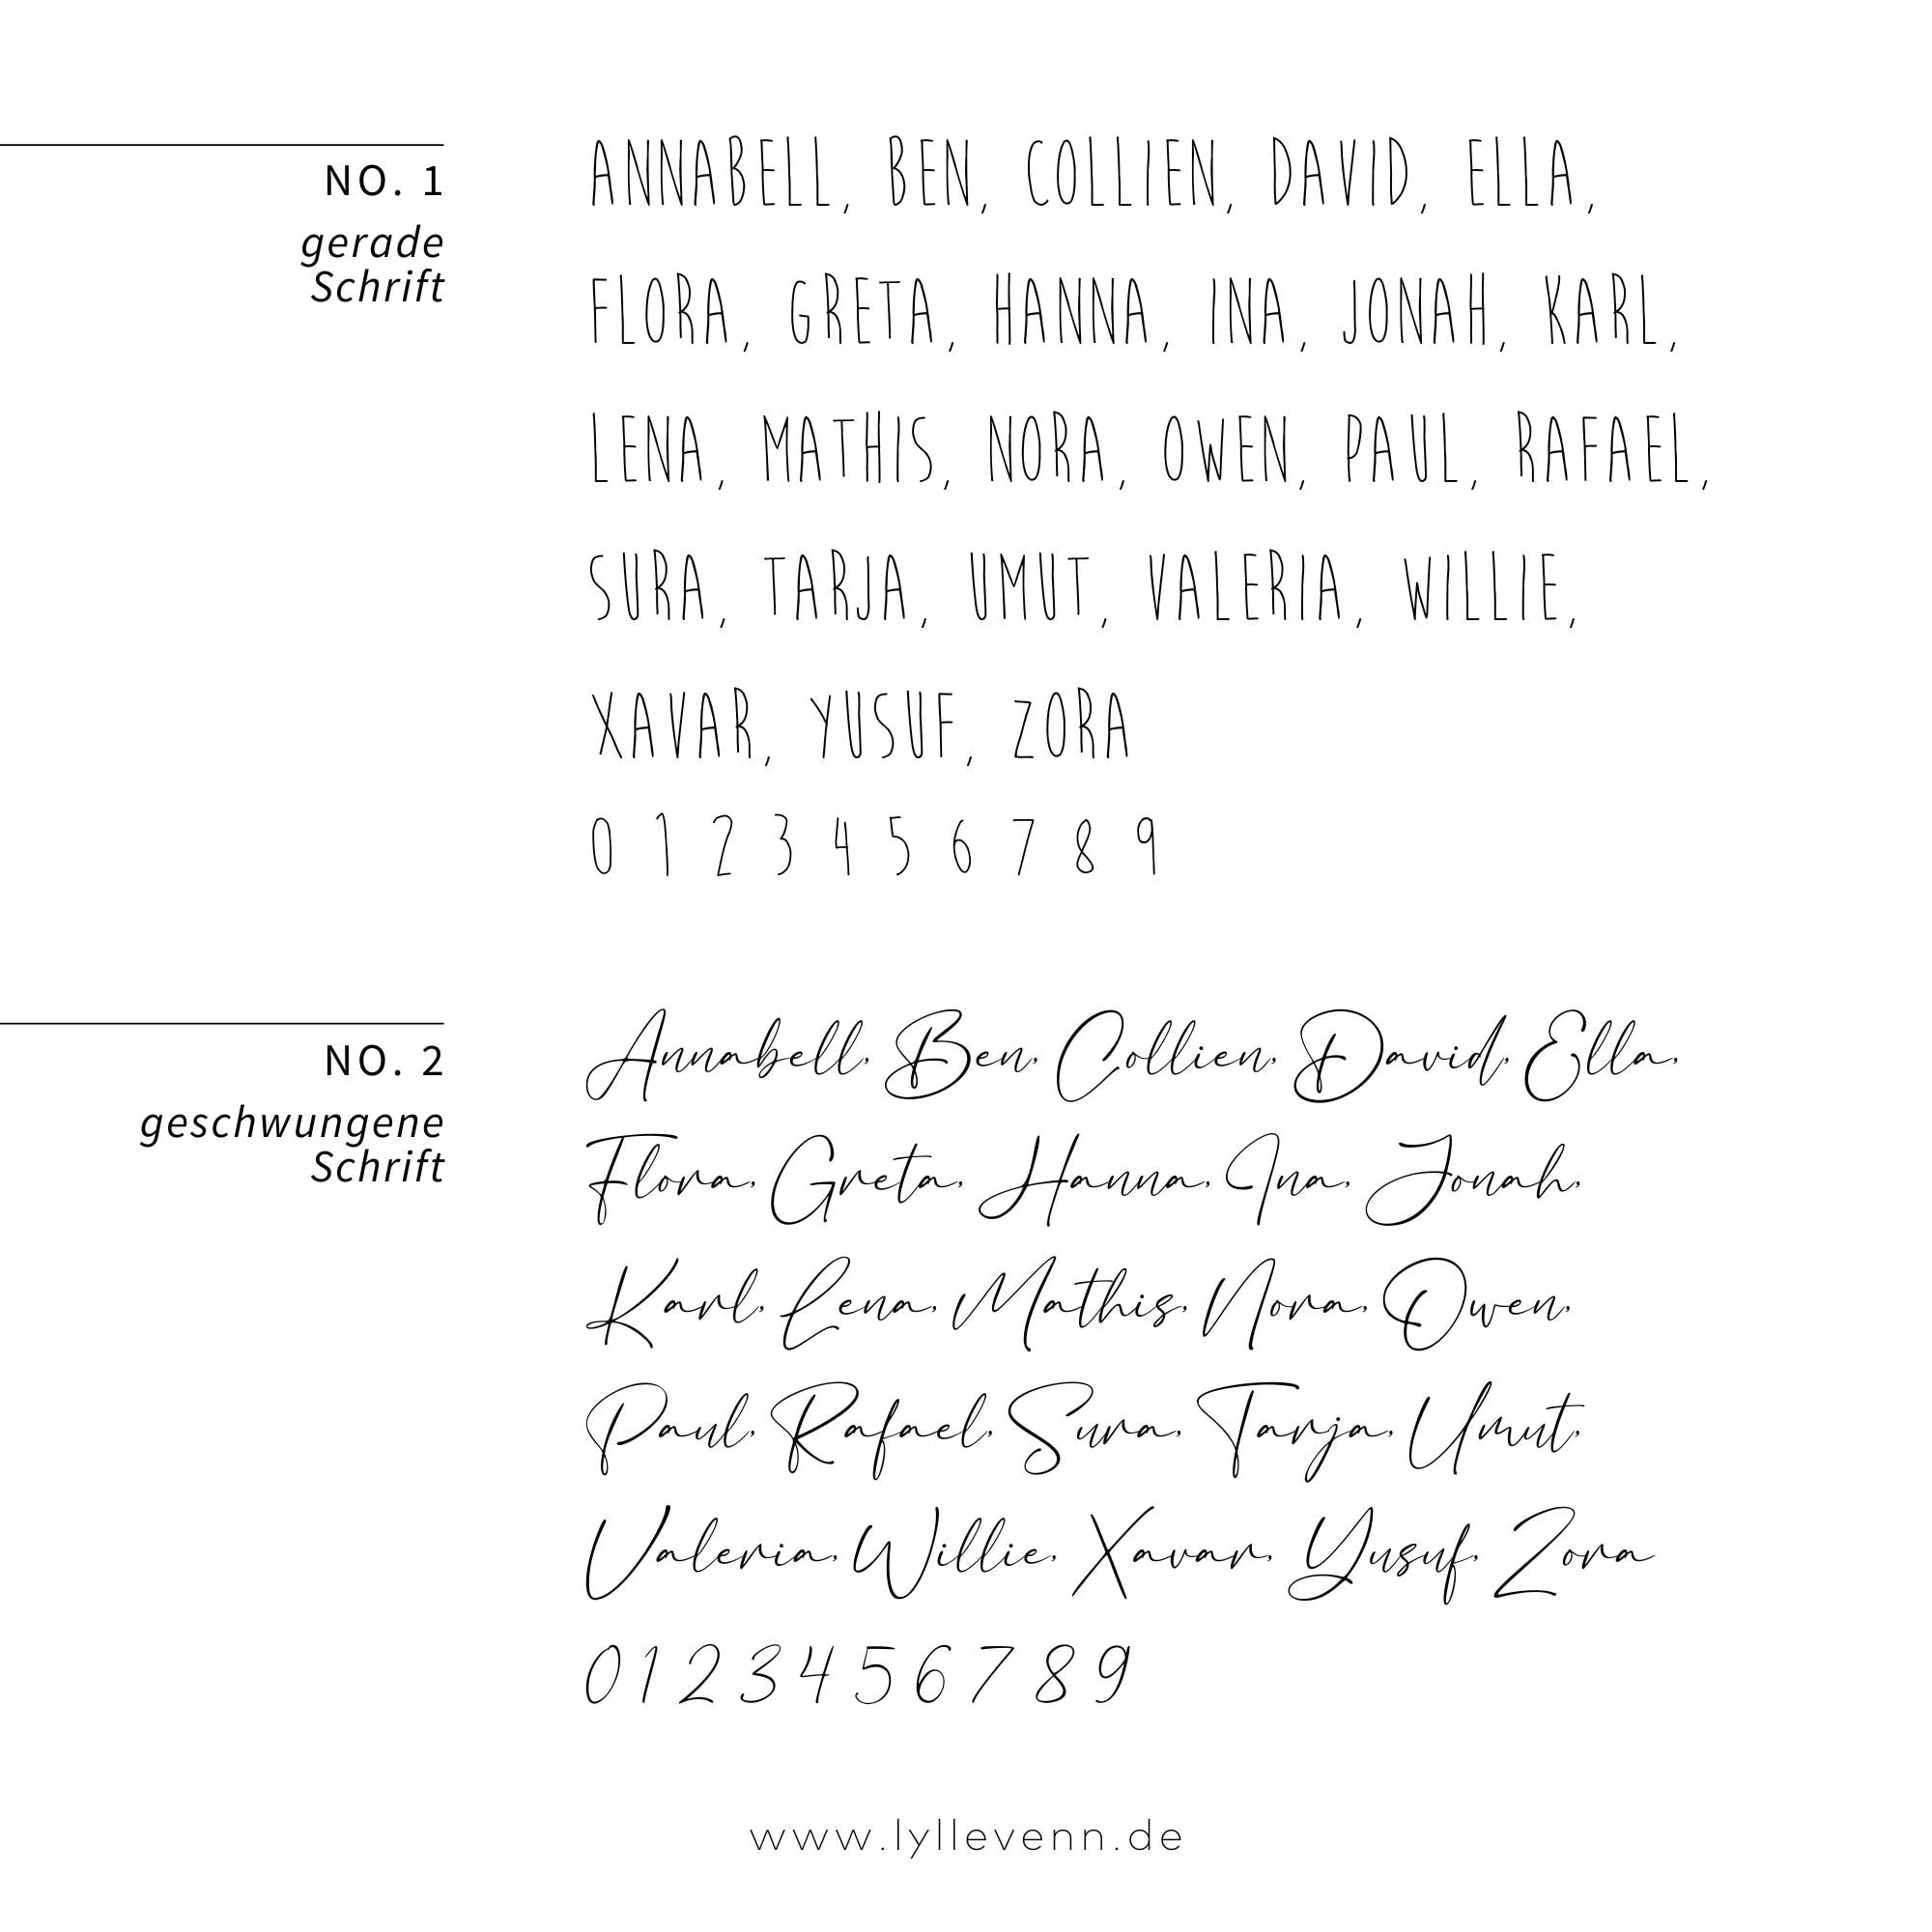 NO. 1
gerade
Schrift
ANNABELL, BEN, COLLIEN, DAVID, ELLA,
FLORA, GRETA, HANNA, INA, JONAH, KARL,
LENA, MATHIS, NORA, OWEN, PAUL, RAFAEL,
SURA, TARJA, UMUT, VALERIA, WILLIE,
XAVAR, YUSUF, ZORA
0 1 2 3 4 5 6 7 8 9
NO. 2
geschwungene
Schrift
Annabell, Ben, Collien, David, Ella,
Flora, Greta, Hanna, Ina, Jonah,
Karl, Lena, Mathis, Nora, Owen,
Paul, Rafael, Sura, Tarja, Umut,
Valeria, Willie, Xavar, Yusuf, Zora
0 1 2 3 4 5 6 7 8 9
www.lyllevenn.de